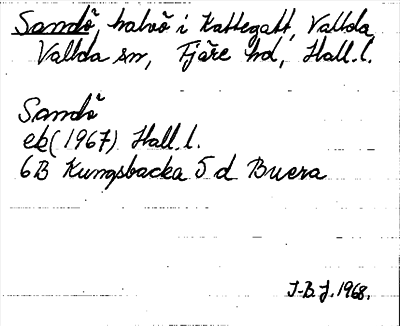 Sandö, halvö i Kattegatt, Vallda,
Vallda sn, Fjäre hd, Hall.l.
Sandö
ek (1967) Hall.l.
6B Kungsbacka 5 d Buera
J-B.J. 1968.